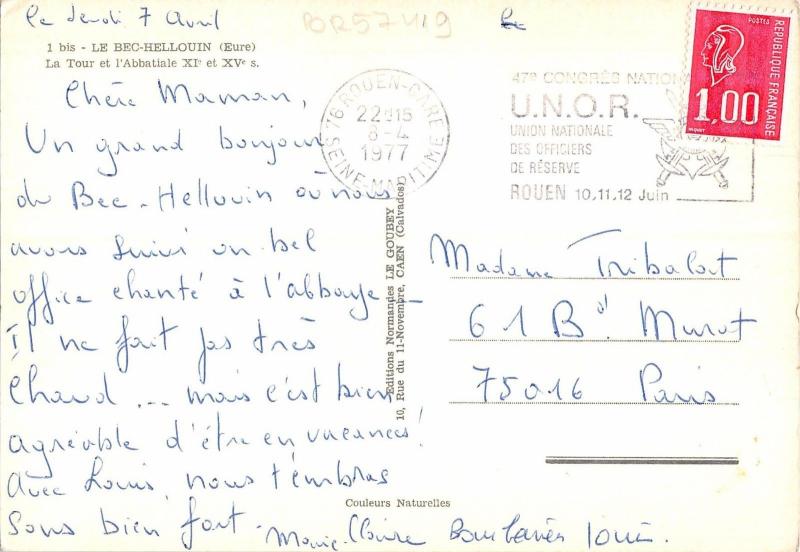 Le Jeudi 7 Avril
BR57419
le
1 bis - LE BEC-HELLOUIN (Eure)
La Tour et l'Abbatiale XIᵉ et XVᵉ s.
Chère Maman,
Un grand bonjour
du Bec-Hellouin où nous
avons suivi un bel
office chanté à l'abbaye -
Il ne fait pas très
chaud ... mais c'est bien
agréable d'être en vacances!
Avec Louis, nous t'embras
sons bien fort -
Marie-Claire
76 ROUEN-GARE
22H15
8-4
1977
SEINE-MARITIME
47e CONGRÈS NATION
U.N.O.R.
UNION NATIONALE
DES OFFICIERS
DE RÉSERVE
ROUEN 10,11,12 Juin
POSTES
REPUBLIQUE FRANÇAISE
1,00
Editions Normandes LE GOUBEY
10, Rue du 11-Novembre, CAEN (Calvados)
Madame Tribalat
61 Bd Murat
75016 Paris
Couleurs Naturelles